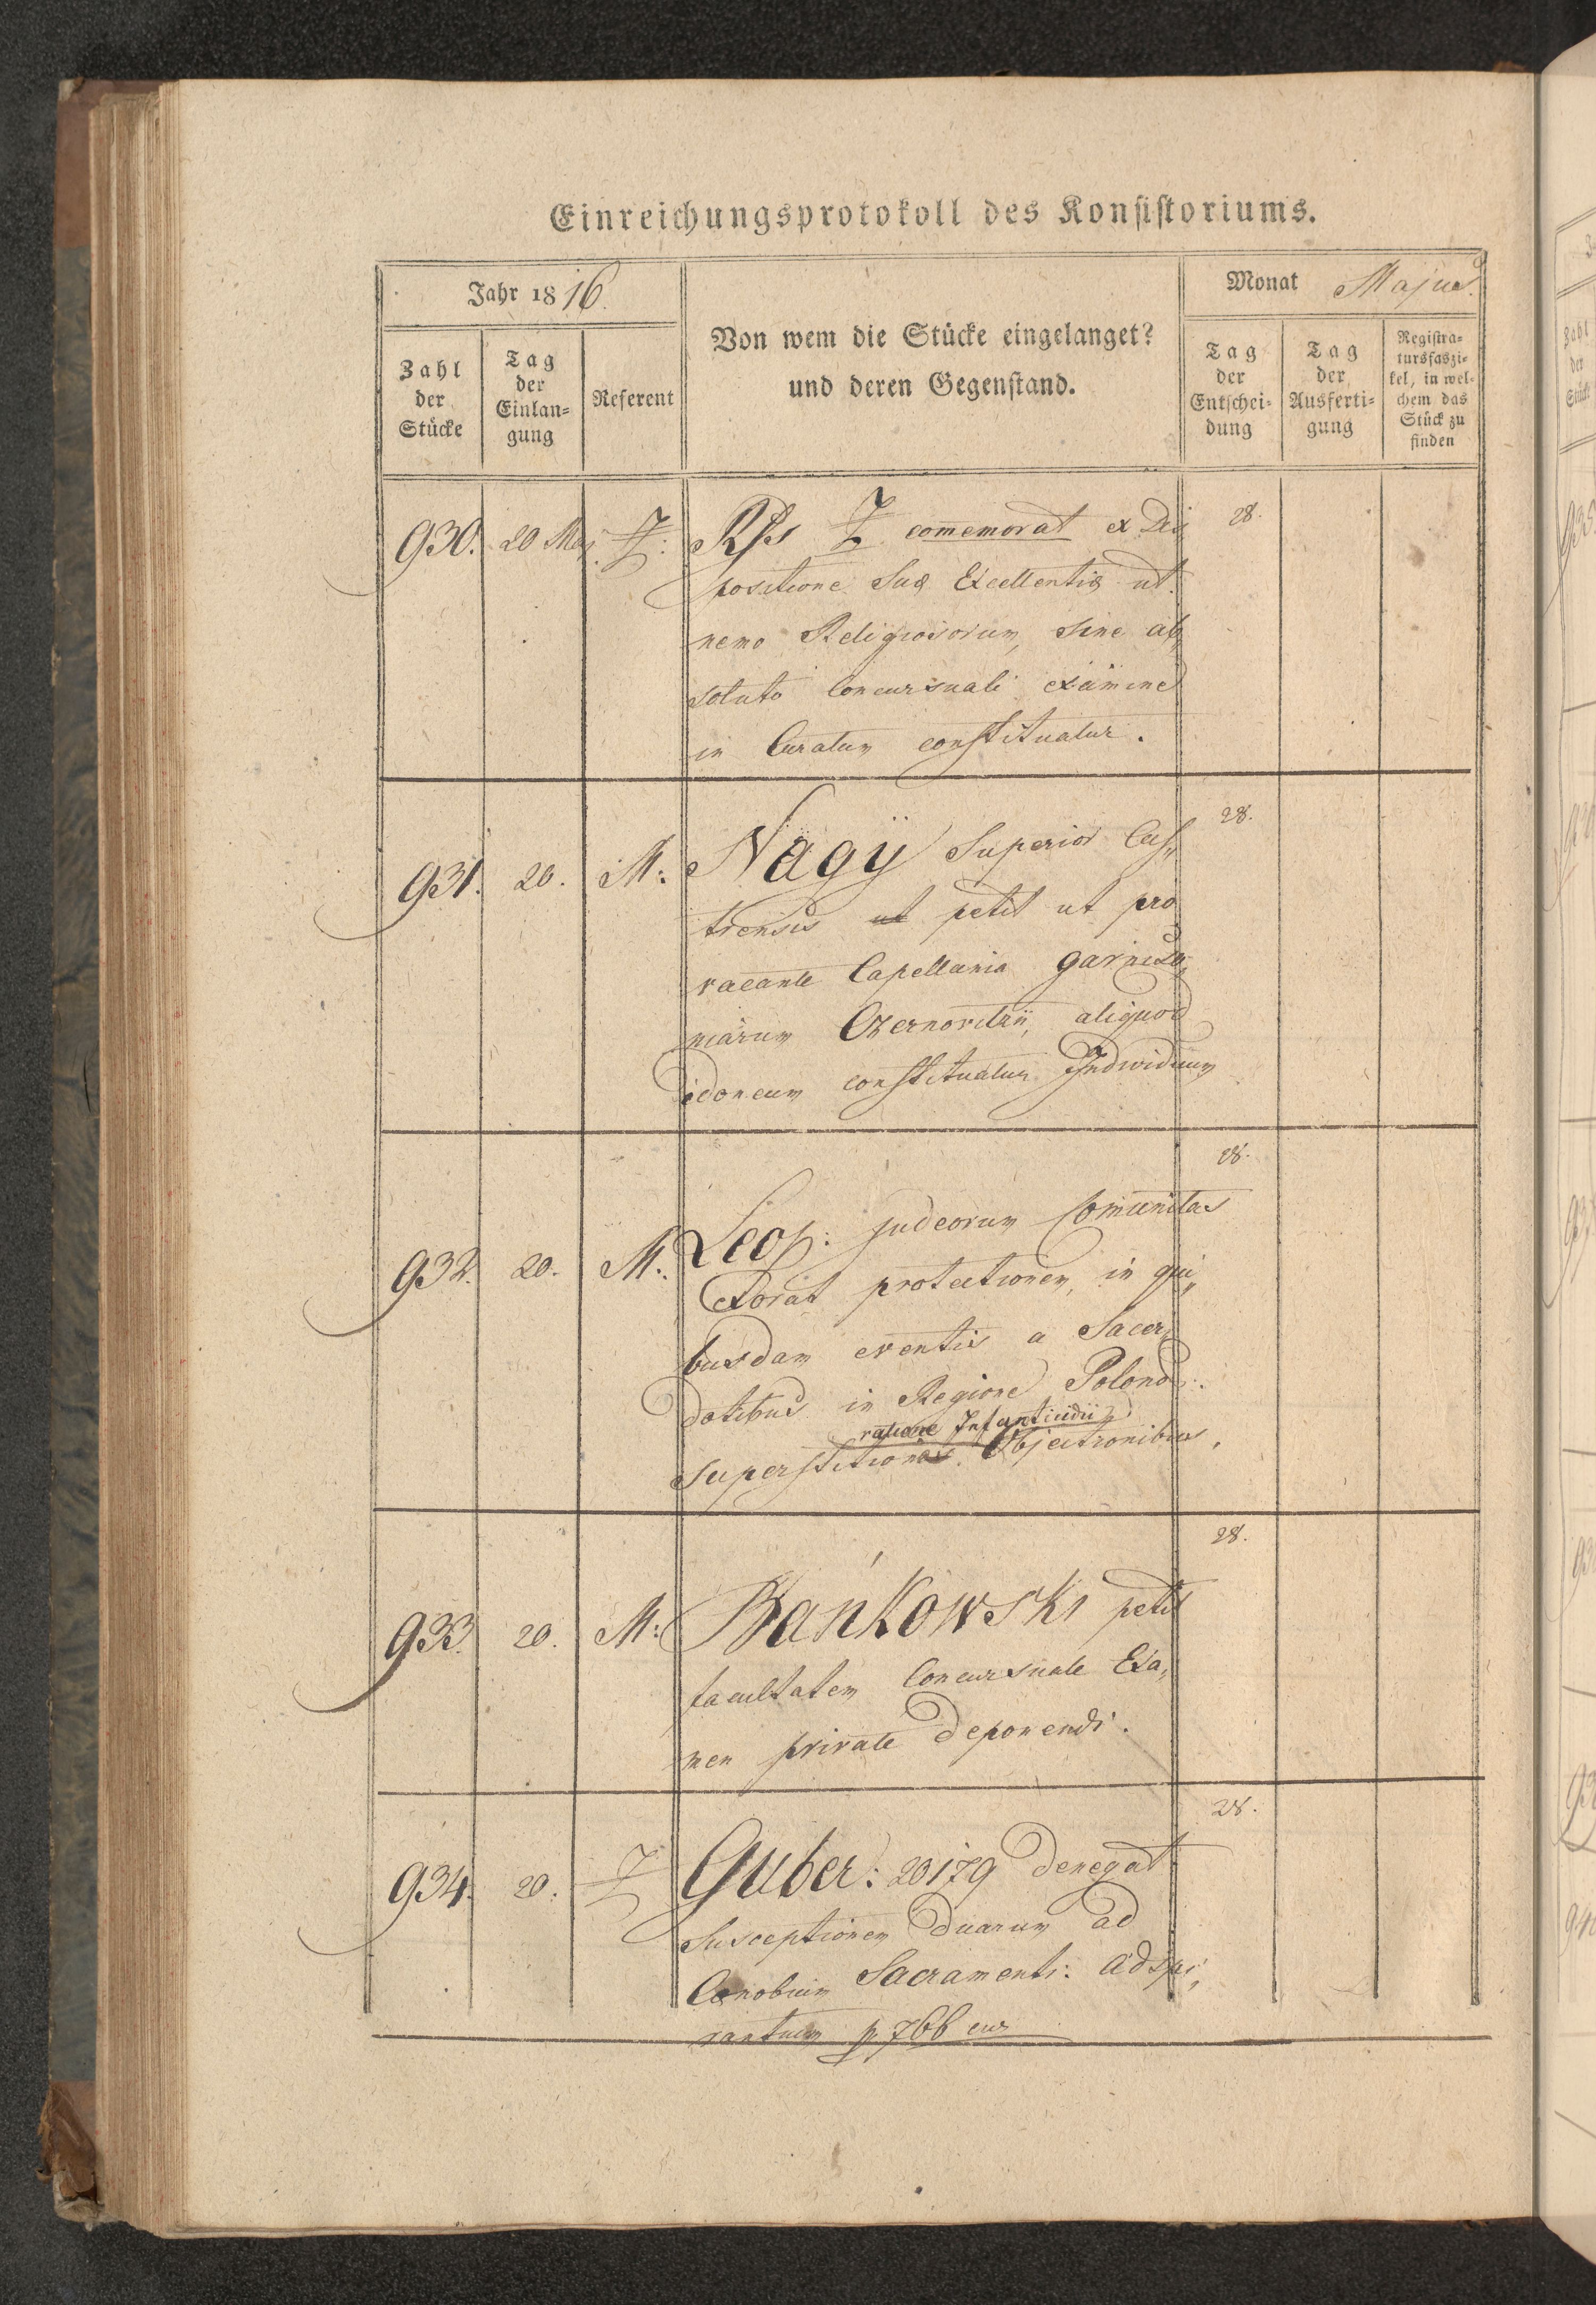 Einreichungsprotokoll des Konsistoriums.
Jahr 1816.
Monat Majus.
Zahl der Stücke
Tag der Einlan=gung
Referent
Von wem die Stücke eingelanget?
und deren Gegenstand.
Tag der Entschei=dung
Tag der Ausferti=gung
Registra=tursfaszi=kel, in wel=chem das Stück zu finden
930. 20 Maj. Z: Rss Z comemorat ex Dis 28.
positione Suæ Excellentiæ ut
nemo Religiosorum, sine ab„
soluto Concursuali examine
in Curatum constituatur.
931. 20. M: Nagÿ Superior Cas„ 28.
trensis ut petit ut pro
vacante Capellania garniso„
niarum Czernovitzii, aliquod
idoneum constituatur Individuum
932. 20. M: Leop: judeorum Comunitas 28.
exorat protectionem, in qui„
busdam eventis a Sacer„
dotibus in Regione Polono:
ratione Infanticidii
superstitiones Objectionibus,
933. 20. M: Bańkowski petit 28.
facultatem Concursuale Exa„
men private deponendi.
934. 20. Z Guber: 20179 denegat 28.
susceptionem duarum ad
Cænobium Sacramenti: adspi„
rantium p 766